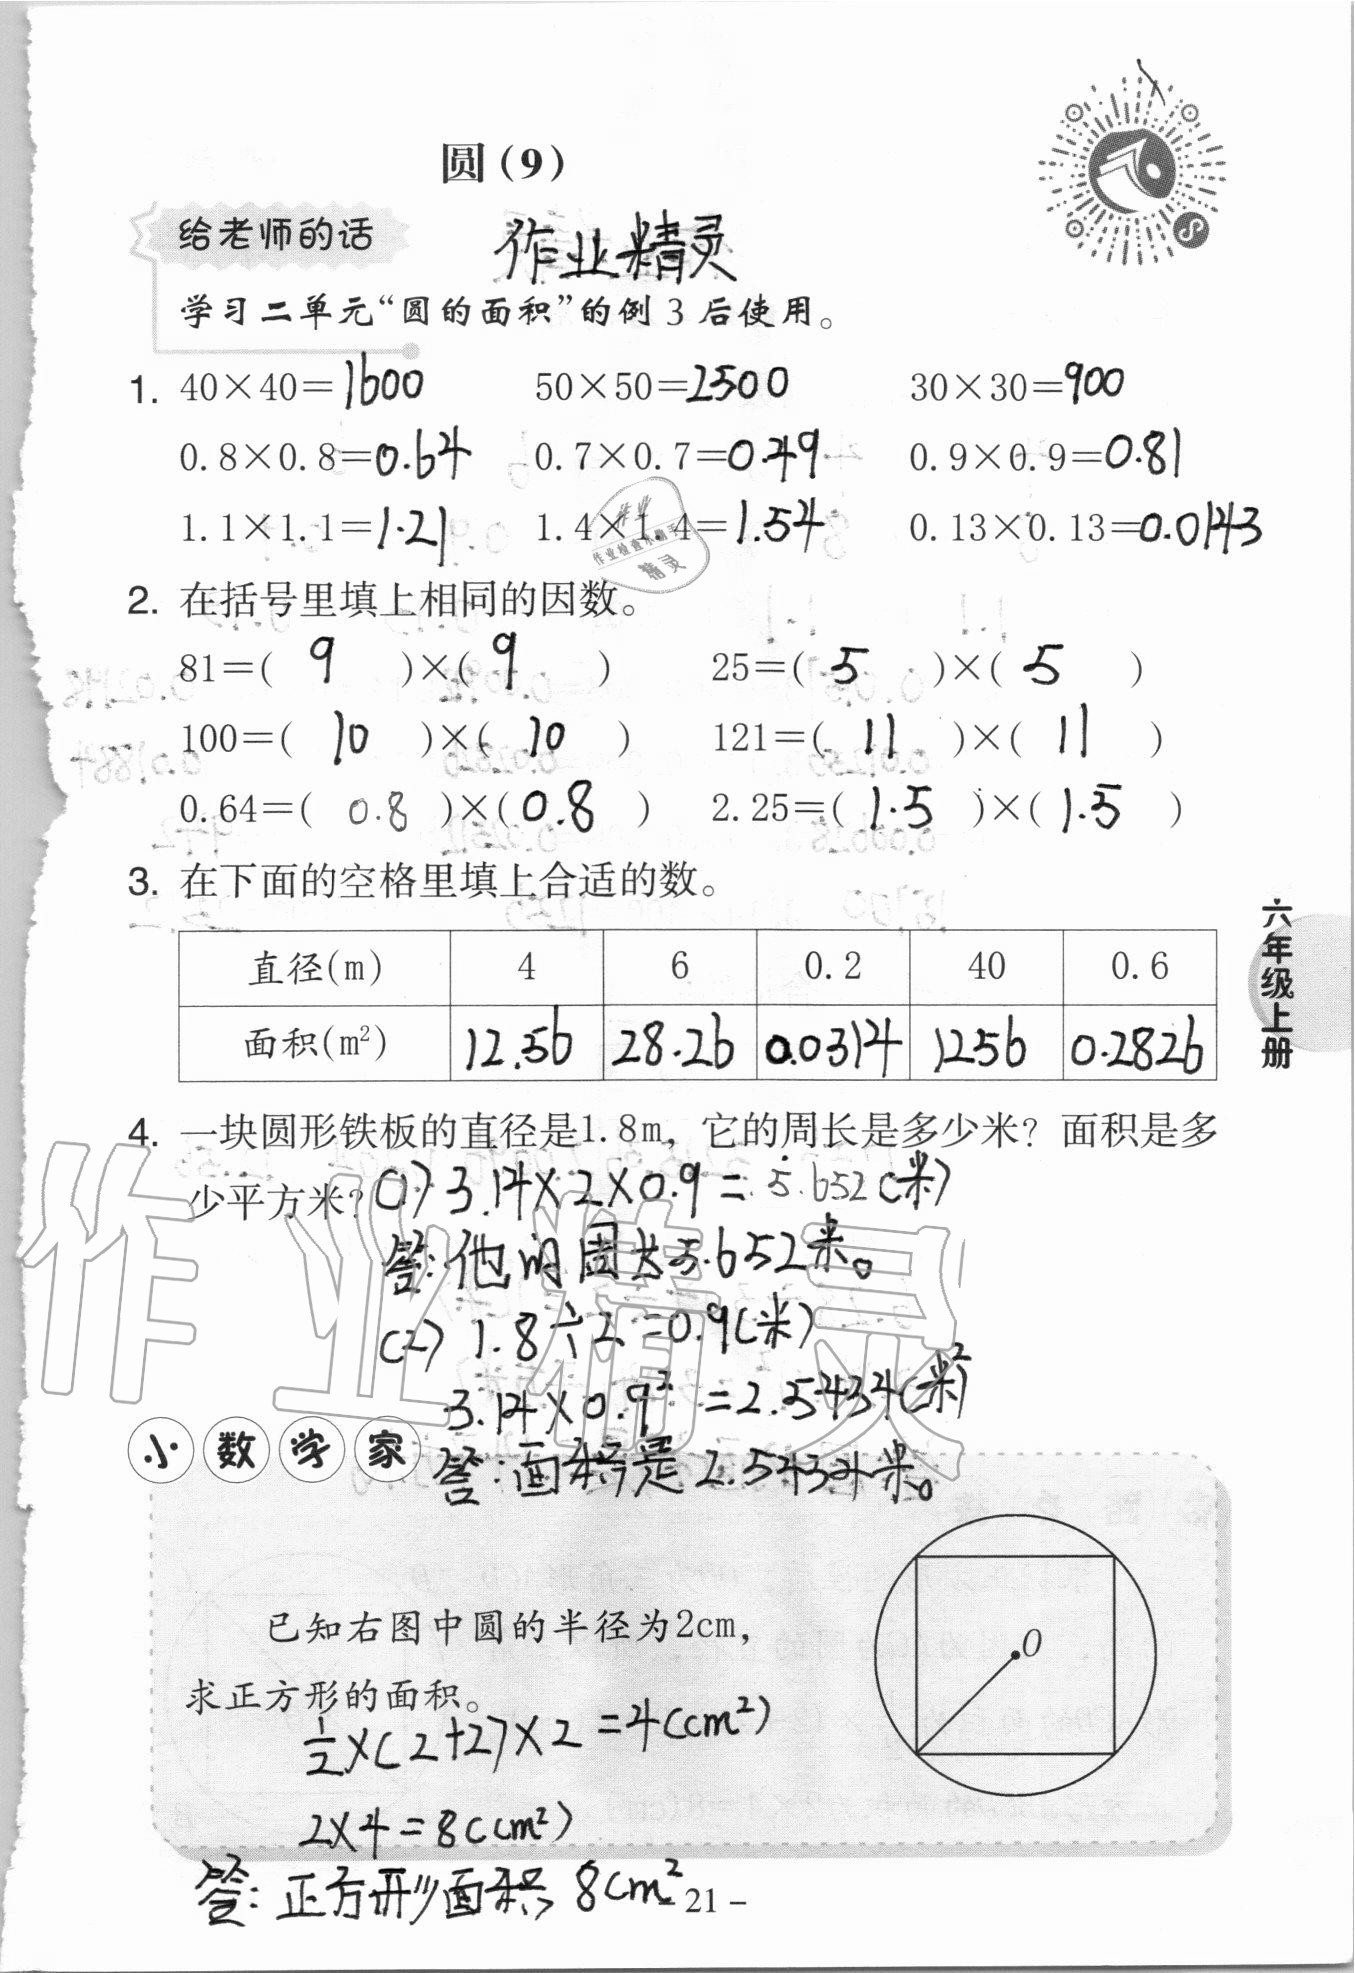 圆(9)
给老师的话
作业精灵
学习二单元“圆的面积”的例3后使用。
1. 40×40=1600 50×50=2500 30×30=900
0.8×0.8=0.64 0.7×0.7=0.49 0.9×0.9=0.81
1.1×1.1=1.21 1.4×1.4=1.54 0.13×0.13=0.0143
2. 在括号里填上相同的因数。
81=( 9 )×( 9 ) 25=( 5 )×( 5 )
100=( 10 )×( 10 ) 121=( 11 )×( 11 )
0.64=( 0.8 )×( 0.8 ) 2.25=( 1.5 )×( 1.5 )
3. 在下面的空格里填上合适的数。
直径(m) 4 6 0.2 40 0.6
面积(m²) 12.56 28.26 0.0314 1256 0.2826
六年级上册
4. 一块圆形铁板的直径是1.8m，它的周长是多少米？面积是多
少平方米？(1) 3.14×2×0.9=5.652(米)
答：他的周长5.652米。
(2) 1.8÷2=0.9(米)
3.14×0.9²=2.5434(米²)
答：面积是2.5434米。
作业精灵
小数学家
已知右图中圆的半径为2cm，
求正方形的面积。
½×(2+2)×2=4(cm²)
2×4=8(cm²)
答：正方形面积8cm²
O
- 21 -